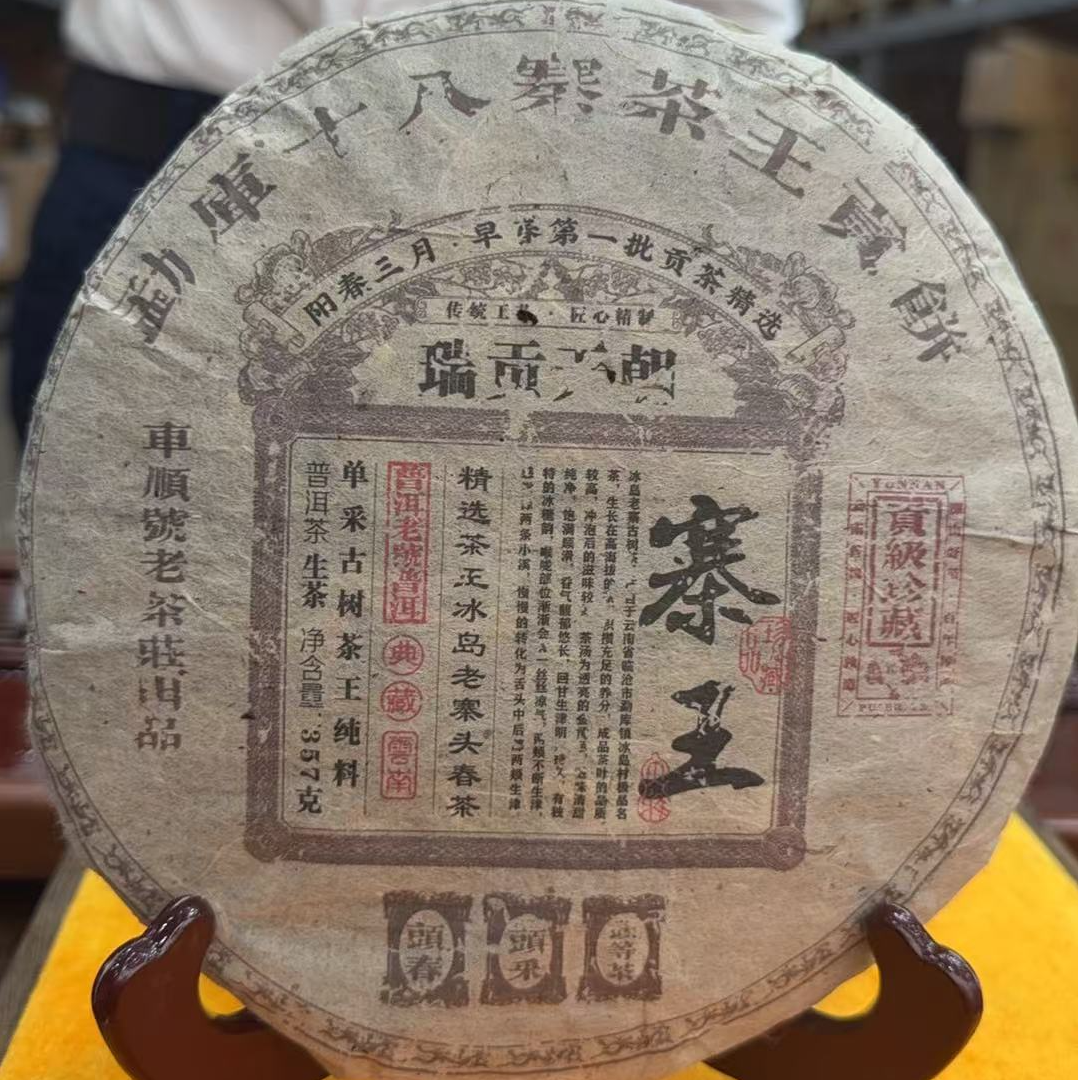 勐庫十八寨茶王貢餅
阳春三月·早采第一批贡茶精选
传统工艺·匠心精制
瑞贡
寨王
珍藏
冰岛老寨古树茶
于云南省临沧市勐库镇冰岛村极品名
茶，生长在高海拔的
充足的养分，成品茶叶的品质
较高，冲泡后的滋味较
茶汤为透亮的金黄色
清甜
纯净，饱满顺滑，香气馥郁悠长，回甘生津明
有独
特的冰糖韵，喉咙部位渐渐会
一丝丝凉气，两颊不断生津，
两条小溪，慢慢的转化为舌头中后
两颊生津
精选茶王冰岛老寨头春茶
普洱老號普洱
典藏
雲南
单采古树茶王纯料
普洱茶 生茶 净含量：357克
車順號老茶莊出品
YUNNAN
貢級珍藏
頭春
頭采